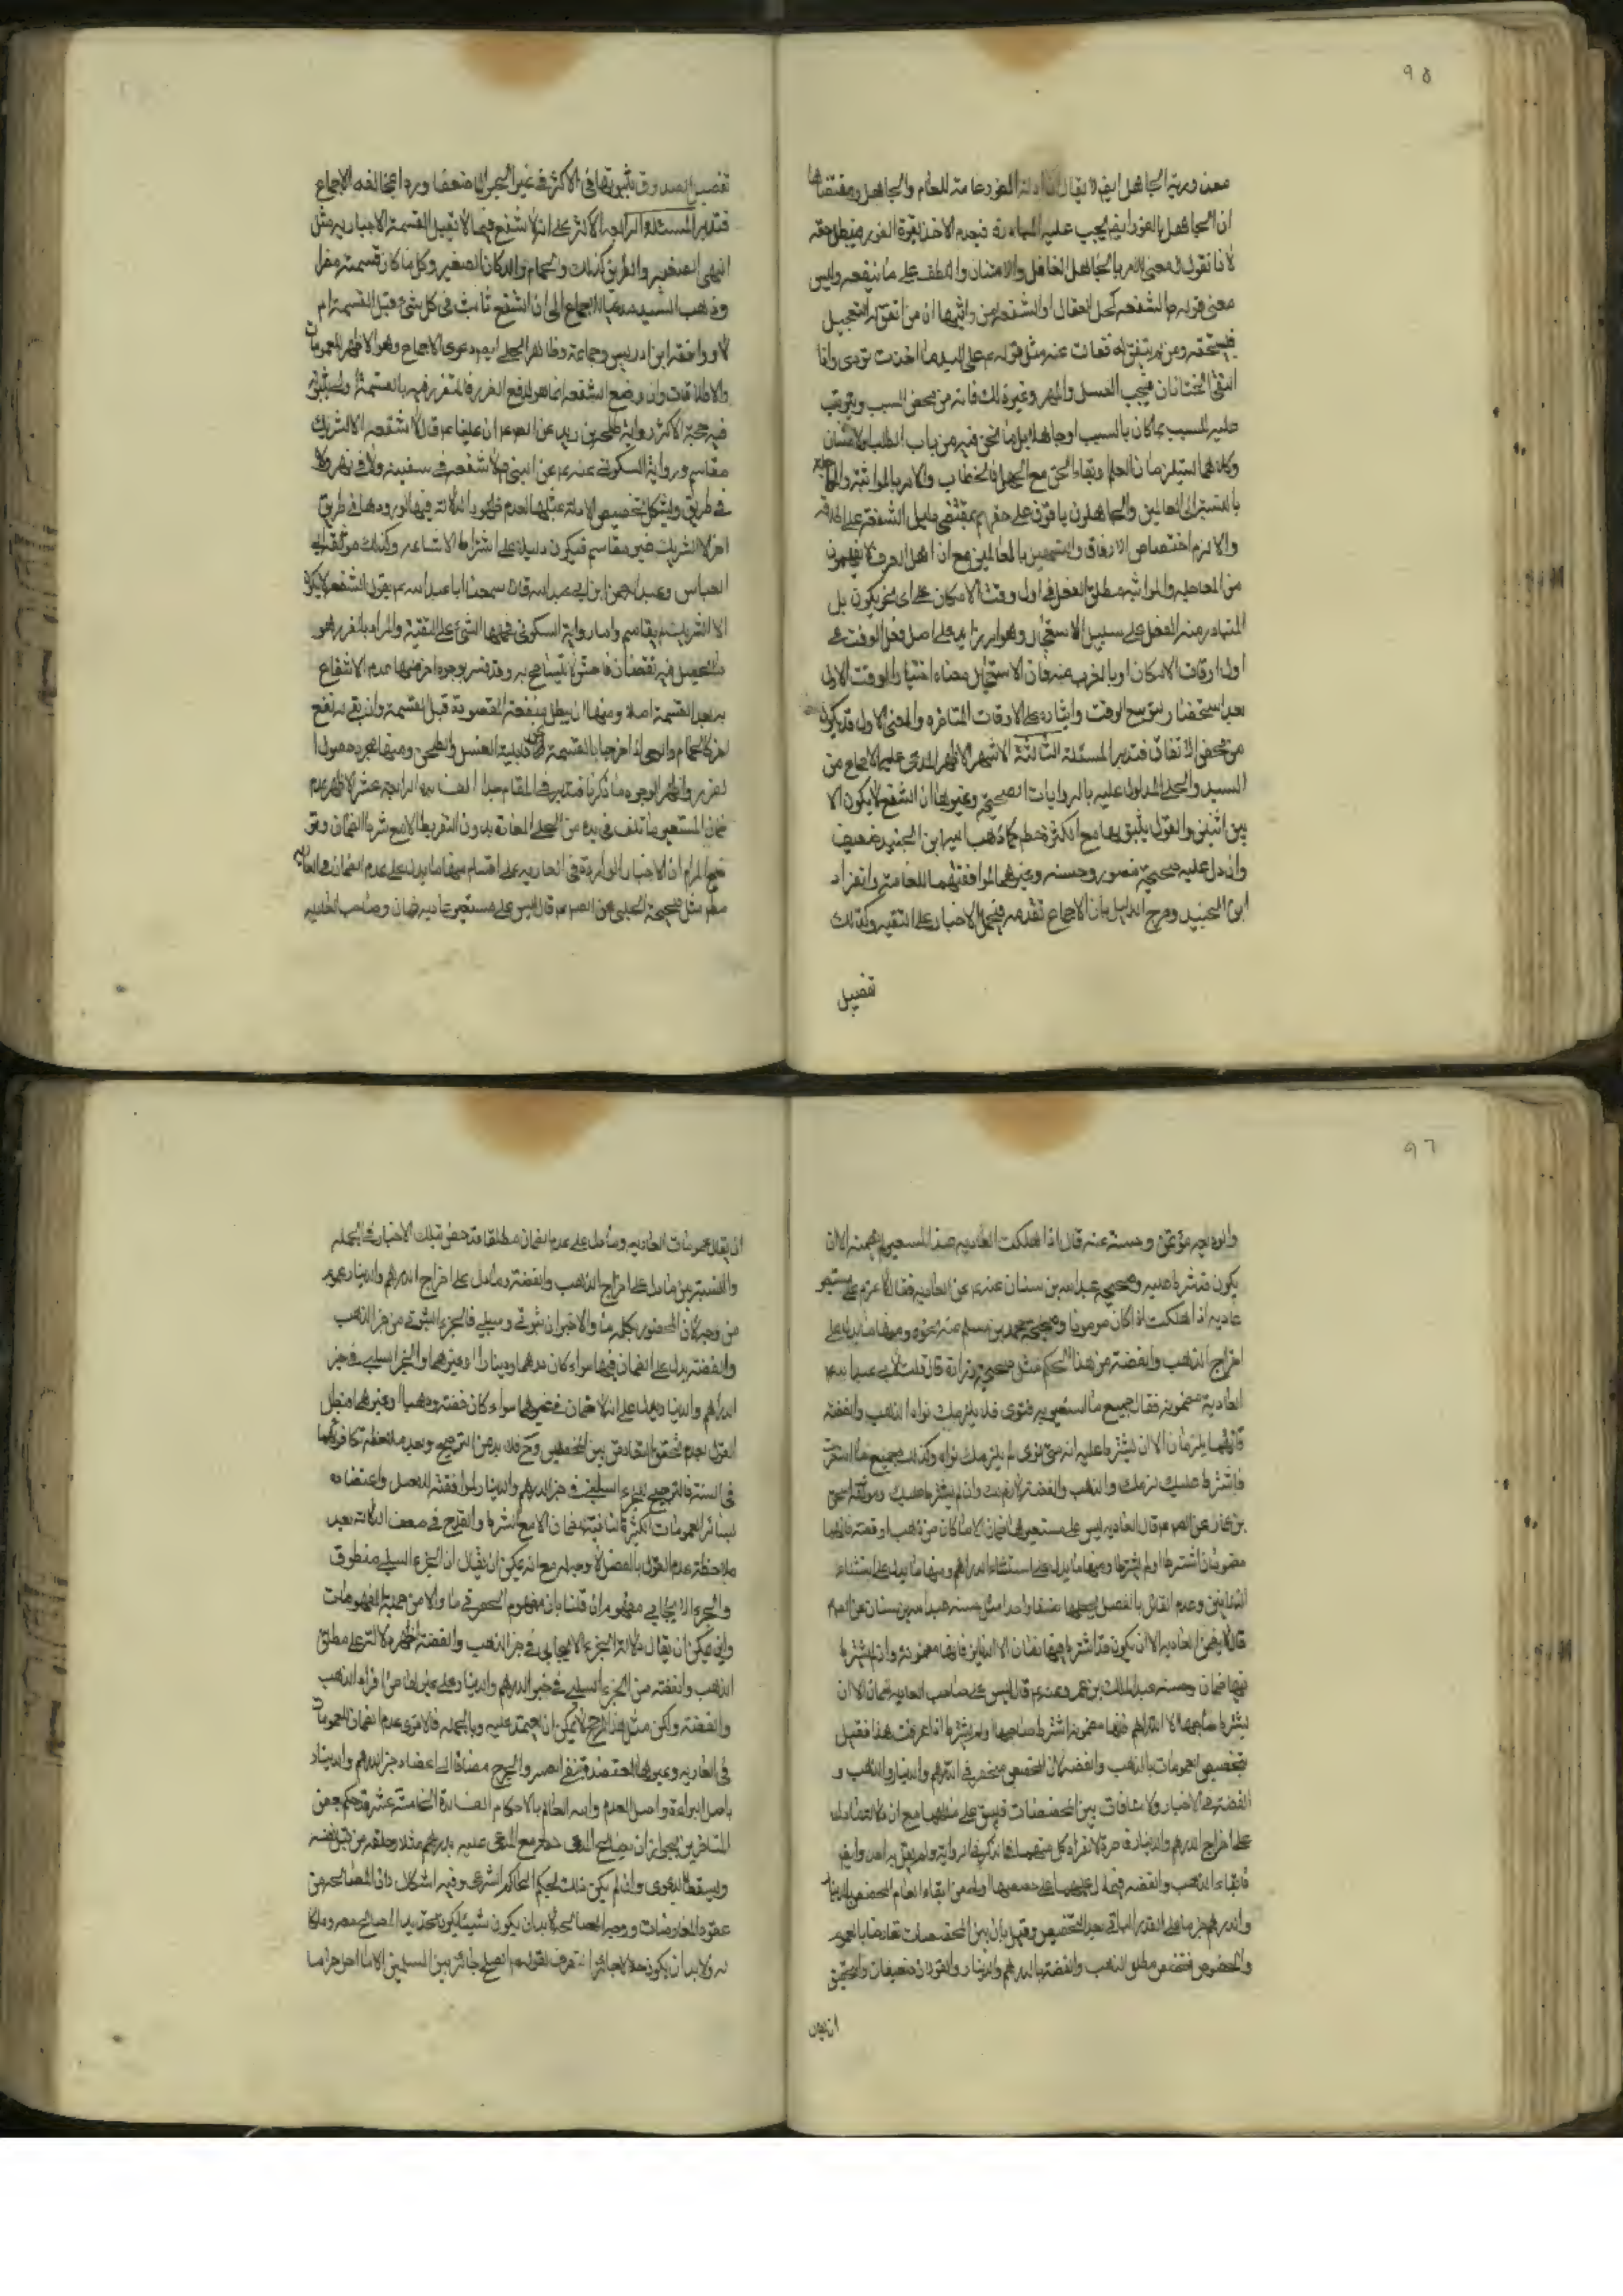 ٩٥
معذورية الجاهل ايضا لا يقال ان ادلة الفور عامة للعالم والجاهل ومقتضاها
ان الجاهل بالفور ايضا يجب عليه المبادرة فبعدم الاخذ بفوره الفور يبطل حقه
لانا نقول لا معنى لامر الجاهل الغافل والامتنان واللطف على ما ينفعه وليس
معنى قوله الشفعة كحل العقال او الشفعة لمن واثبها ان من اتفق له التعجيل
فيستحقه ومن لم يتفق له فات عنه مثل قوله م على اليد ما اخذت تودى واذا
التقى الختانان فيجب الغسل والمهر وغير ذلك فانه من محض السبب ويترتب
عليه المسبب بما كان بالسبب او جاهلا بل ما نحن فيه من باب الطلب والامتنان
وكلاهما يستلزمان العلم وبقاء الحق مع الجهل بالخطاب والامر بالمواثبة
بالنسبة الى العالمين والجاهلون باقون على حقهم بمقتضى دليل الشفعة على اطلاقه
والا لزم اختصاص الارفاق بالعالمين مع ان اهل العرف لا يفهمون
من المعاجلة والمواثبة مطلق الفعل في اول وقت الامكان على اى نحو يكون بل
المتبادر منه الفعل على سبيل الاستعجال وهو امر زايد على اصل فعل الوقت في
اول اوقات الامكان او بالقرب منه فان الاستعجال معناه اختيار الوقت الاول
بعد استحضار توسيع الوقت وايثاره على الاوقات المتاخرة والمعنى الاول قد يكون
من محض الاتفاق فتدبر المسئلة الثالثة الاشهر الاظهر المدعى عليه الاجماع من
السيد والحلى المدلول عليه بالروايات الصحيحة وغيرها ان الشفع لا يكون الا
بين اثنين والقول بثبوتها مع الكثرة مطلقا كما ذهب اليه ابن الجنيد ضعيف
وان دل عليه صحيحة منصور وحسنه وغيرهما لموافقتهما للعامة وانفراد
ابن الجنيد ومرجع الدليل بان الاجماع تقدمه فيحمل الاخبار على التقية وكذلك
تفصيل
تفصيل الصدوق بثبوتها في الاكثر في غير الحيوان ضعفا ورد المخالفة الاجماع
فتدبر المسئلة الرابعة الاكثر على انه لا شفع فيما لا تقبل القسمة الاجبارية مثل
النهر الصغير والطريق كذلك والحمام والدكان الصغير وكل ما كان قسمته مضرا
وذهب السيد مدعيا الاجماع الى ان الشفع ثابت في كل شئ قبل القسمة ام
لا ووافقه ابن ادريس وجماعة وظاهر الحلى ايضا دعوى الاجماع وهو الاظهر للعمومات
والاطلاقات وان وضع الشفعة انما هو لدفع الضرر
فيه حجة الاكثر رواية طلحة بن زيد عن الصم م ان عليا م قال لا شفعة الا لشريك
مقاسم ورواية السكونى عنه م عن النبى ص لا شفعة في سفينة ولا في نهر ولا
في طريق ويشكل تخصيص الادلة بمثلها لعدم ظهور الدلالة فيها لورودها في طريق
اخر لا لشريك غير مقاسم فيكون دليلا على اشتراط الاشاعة وكذلك موثقة ابى
العباس وعبد الرحمن بن ابى عبد الله قالا سمعنا ابا عبد الله م يقول الشفعة لا يكون
الا لشريك لم يقاسم واما رواية السكونى فحملها الشيخ على التقية والمراد بالضرر هو
ما يحصل فيه نقصان فاحش لا يتسامح به وقد فسر بوجوه اخر منها عدم الانتفاع
به بعد القسمة اصلا ومنها ان يبطل منفعته المقصودة قبل القسمة وان بقى به نفع
اخر كالحمام والرحى اذا خرجا بالقسمة عن قابلية الغسل والطحن ومنها مجرد حصول
الضرر واظهر الوجوه ما ذكرنا فتدبر في المقام جدا الرابعة عشر الاظهر عدم
ضمان المستعير ما تلف في يده من الحلى المعارة بدون التفريط الا مع شرط الضمان
المرام ان الاخبار الواردة في العارية على اقسام منها ما يدل على عدم الضمان في العارية
مطلقا مثل صحيحة الحلبى عن الصم م قال ليس على مستعير عارية ضمان وصاحب العارية
٩٦
والوديعة مؤتمن وحسنته عنه قال اذا هلكت العارية عند المستعير لم يضمنه الا ان
يكون قد شرط عليه وصحيحة عبد الله بن سنان عنه م عن العارية فقال لا غرم على مستعير
عارية اذا هلكت اذا كان مومونا وصحيحة محمد بن مسلم عنه نحوه ومنها ما يدل على
اخراج الذهب والفضة من هذا الحكم مثل صحيحة زرارة قال قلت لابى عبد الله م
العارية مضمونة فقال جميع ما استعيرته فتوى فلا يلزمك تواه الا الذهب والفضة
فانهما يلزمان الا ان يشترط عليه انه متى توى لم يلزمك تواه وكذلك جميع ما استعرت
فاشترط عليك لزمك والذهب والفضة لازم لك وان لم يشترط عليك وموثقة اسحق
بن عمار عن الصم م قال العارية ليس على مستعيرها ضمان الا ما كان من ذهب او فضة فانهما
مضمونان اشترطا او لم يشترطا ومنها ما يدل على استثناء الدراهم ومنها ما يدل على استثناء
الدنانير وعدم القائل بالفصل يجعلها صنفا واحدا مثل حسنة عبد الله بن سنان عن الصم م
قال لا يضمن العارية الا ان يكون قد اشترط فيها ضمان الا الدنانير فانها مضمونة وان لم يشترط
فيها ضمان وحسنة عبد الملك بن عمرو عنه م قال ليس على صاحب العارية ضمان الا ان
يشترط صاحبها الا الدراهم فانها مضمونة اشترط صاحبها او لم يشترط اذا عرفت هذا فقيل
بتخصيص العمومات بالذهب والفضة لان المخصص منحصر في الدراهم والدنانير والذهب و
الفضة في الاخبار ولا منافات بين المخصصات فيبقى على حالها مع ان
على اخراج الدرهم والدينار قاصرة لانفراد كل منهما
فابقاء الذهب والفضة
والدرهم بعد التخصيص وقيل بان بين المخصصات تعارضا بالعموم
والخصوص فتخصص مطلق الذهب والفضة بالدرهم والدينار والقولان ضعيفان والتحقيق
ان يقال
ان يقال عمومات العارية وما دل على عدم الضمان مطلقا قد خص بتلك الاخبار في الجملة
والنسبة بين ما دل على اخراج الذهب والفضة وما دل على اخراج الدرهم والدينار عموم
من وجه لان المحصور بكلمة ما والا خبران ثبوتى وسلبى فالجزء الثبوتى من خبر الذهب
والفضة يدل على الضمان فيها سواء كان درهما ودينارا او غيرهما والجزء السلبى في خبر
الدرهم والدينار يدل على انه لا ضمان في غيرهما سواء كان فضة وذهبا او غيرهما فبطل
القول بعدم تحقق التعارض بين المخصصين وح فلا بد من الترجيح وبعد ملاحظة تكافؤهما
في السنة فالترجيح للجزء السلبى في خبر الدرهم والدينار لموافقته للاصل واعتضاده
بسائر العمومات الكثيرة النافية للضمان الا مع الشرط والقدح في ضعف الدلالة بعد
ملاحظة عدم القول بالفصل لا وجه له مع انه يمكن ان يقال ان الجزء السلبى منطوق
والجزء الايجابى مفهوم ان قلنا بان مفهوم الحصر في ما والا من جملة المفهومات
وايضا يمكن ان يقال دلالة الجزء الايجابى في خبر الذهب والفضة اظهر دلالة على مطلق
الذهب والفضة من الجزء السلبى في خبر الدرهم والدينار على غيرهما من افراد الذهب
والفضة ولكن مثل هذا الترجيح لا يمكن ان يعتمد عليه وبالجملة فالاقوى عدم الضمان للعمومات
في العارية وغيرها المعتضدة بنفى العسر والحرج مضافا الى اعتضاد خبر الدرهم والدينار
باصل البراءة واصل العدم والله العالم بالاحكام الخامسة عشر قد حكم بعض
المتاخرين بجواز ان يصالح المدعى مع المدعى عليه بدرهم مثلا وحلفه
ويسقط الدعوى وان لم يكن ذلك بحكم الحاكم الشرعى وفيه اشكال لان المصالحة من
عقود المعاوضات ووجه المصالحة لا بد ان يكون شيئا
له ولا بد ان يكون حلالا جائز التصرف لقوله م الصلح جائز بين المسلمين الا ما احل حراما